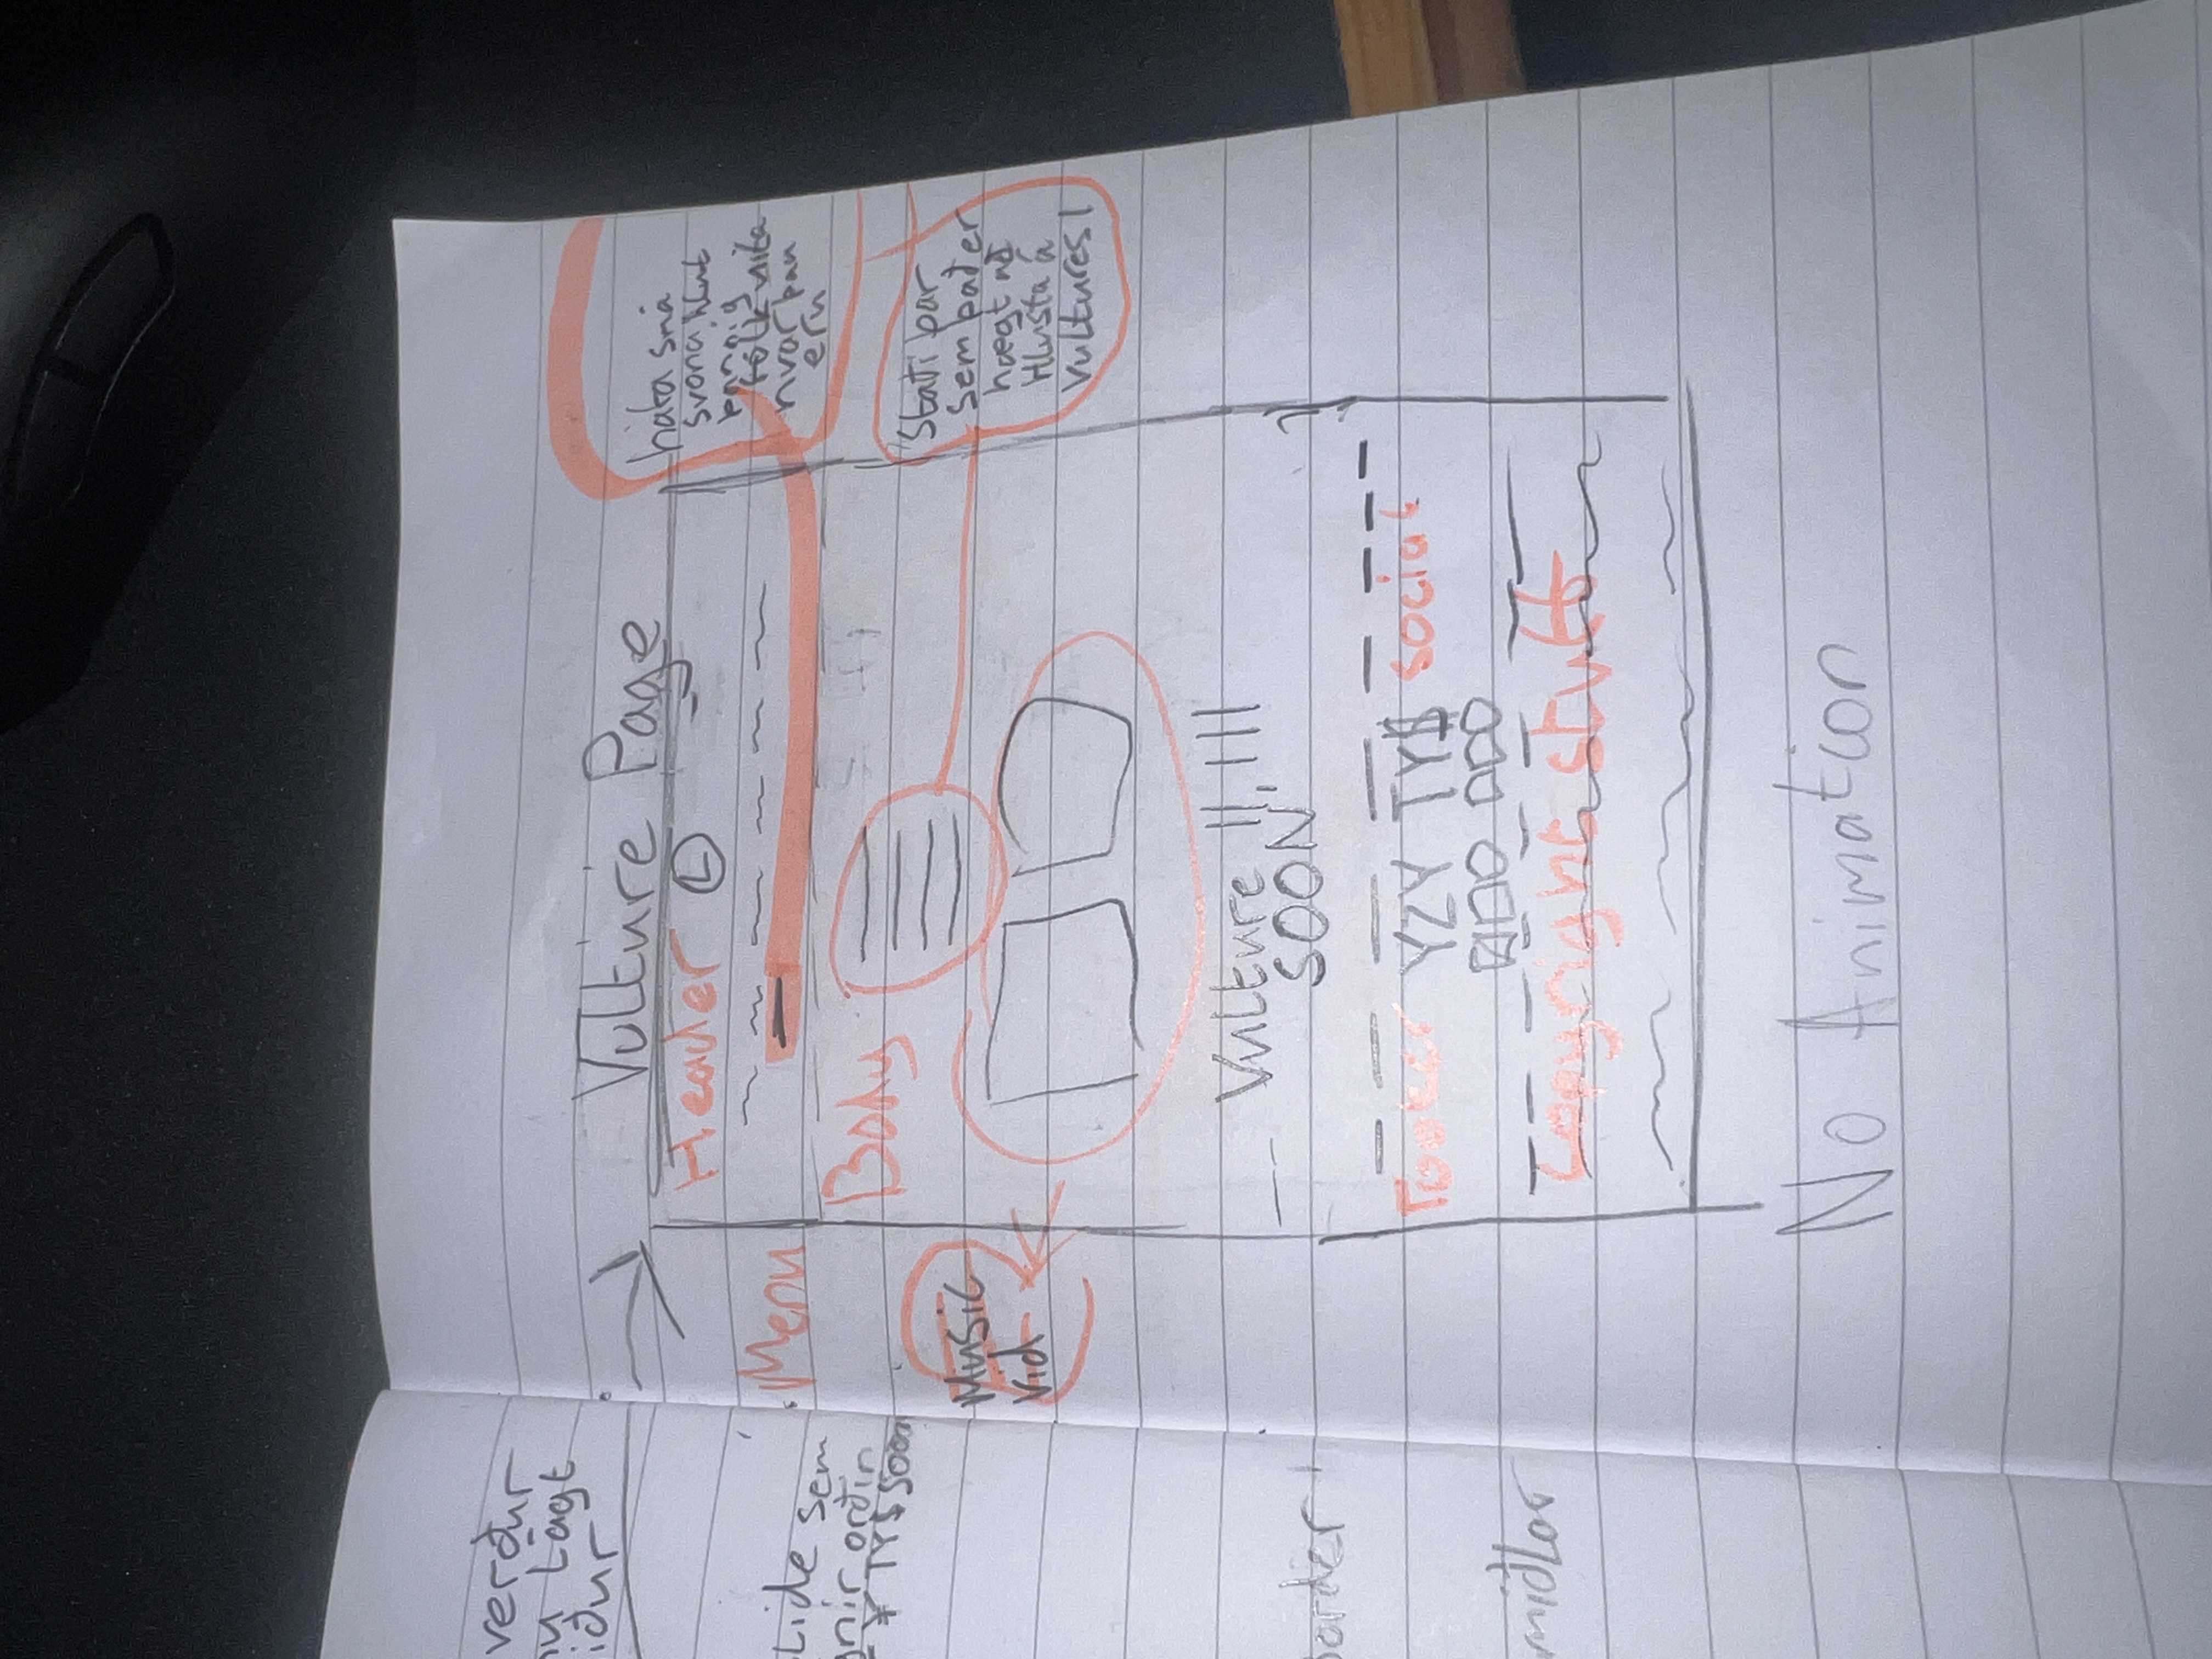 verður
Lágt
iður
Lide sem
gnir orðin
¥ TY$ Soon
order
miðlar
Vulture Page
Header L
Menu
háfa smá
svona hlut
þannig
fólk vita
hvar þau
eru
Body
Staði þar
sem það er
hægt að
Hlusta á
Vultures 1
Music
Vid
Vulture II, III
SOON
Footer YZY TY$ social
Copyright stuff
No Animation